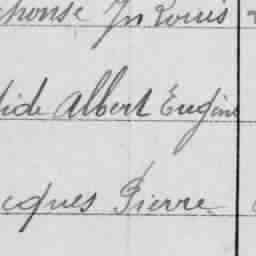 phonse Jn Louis
ide Albert Eugène
cques Pierre